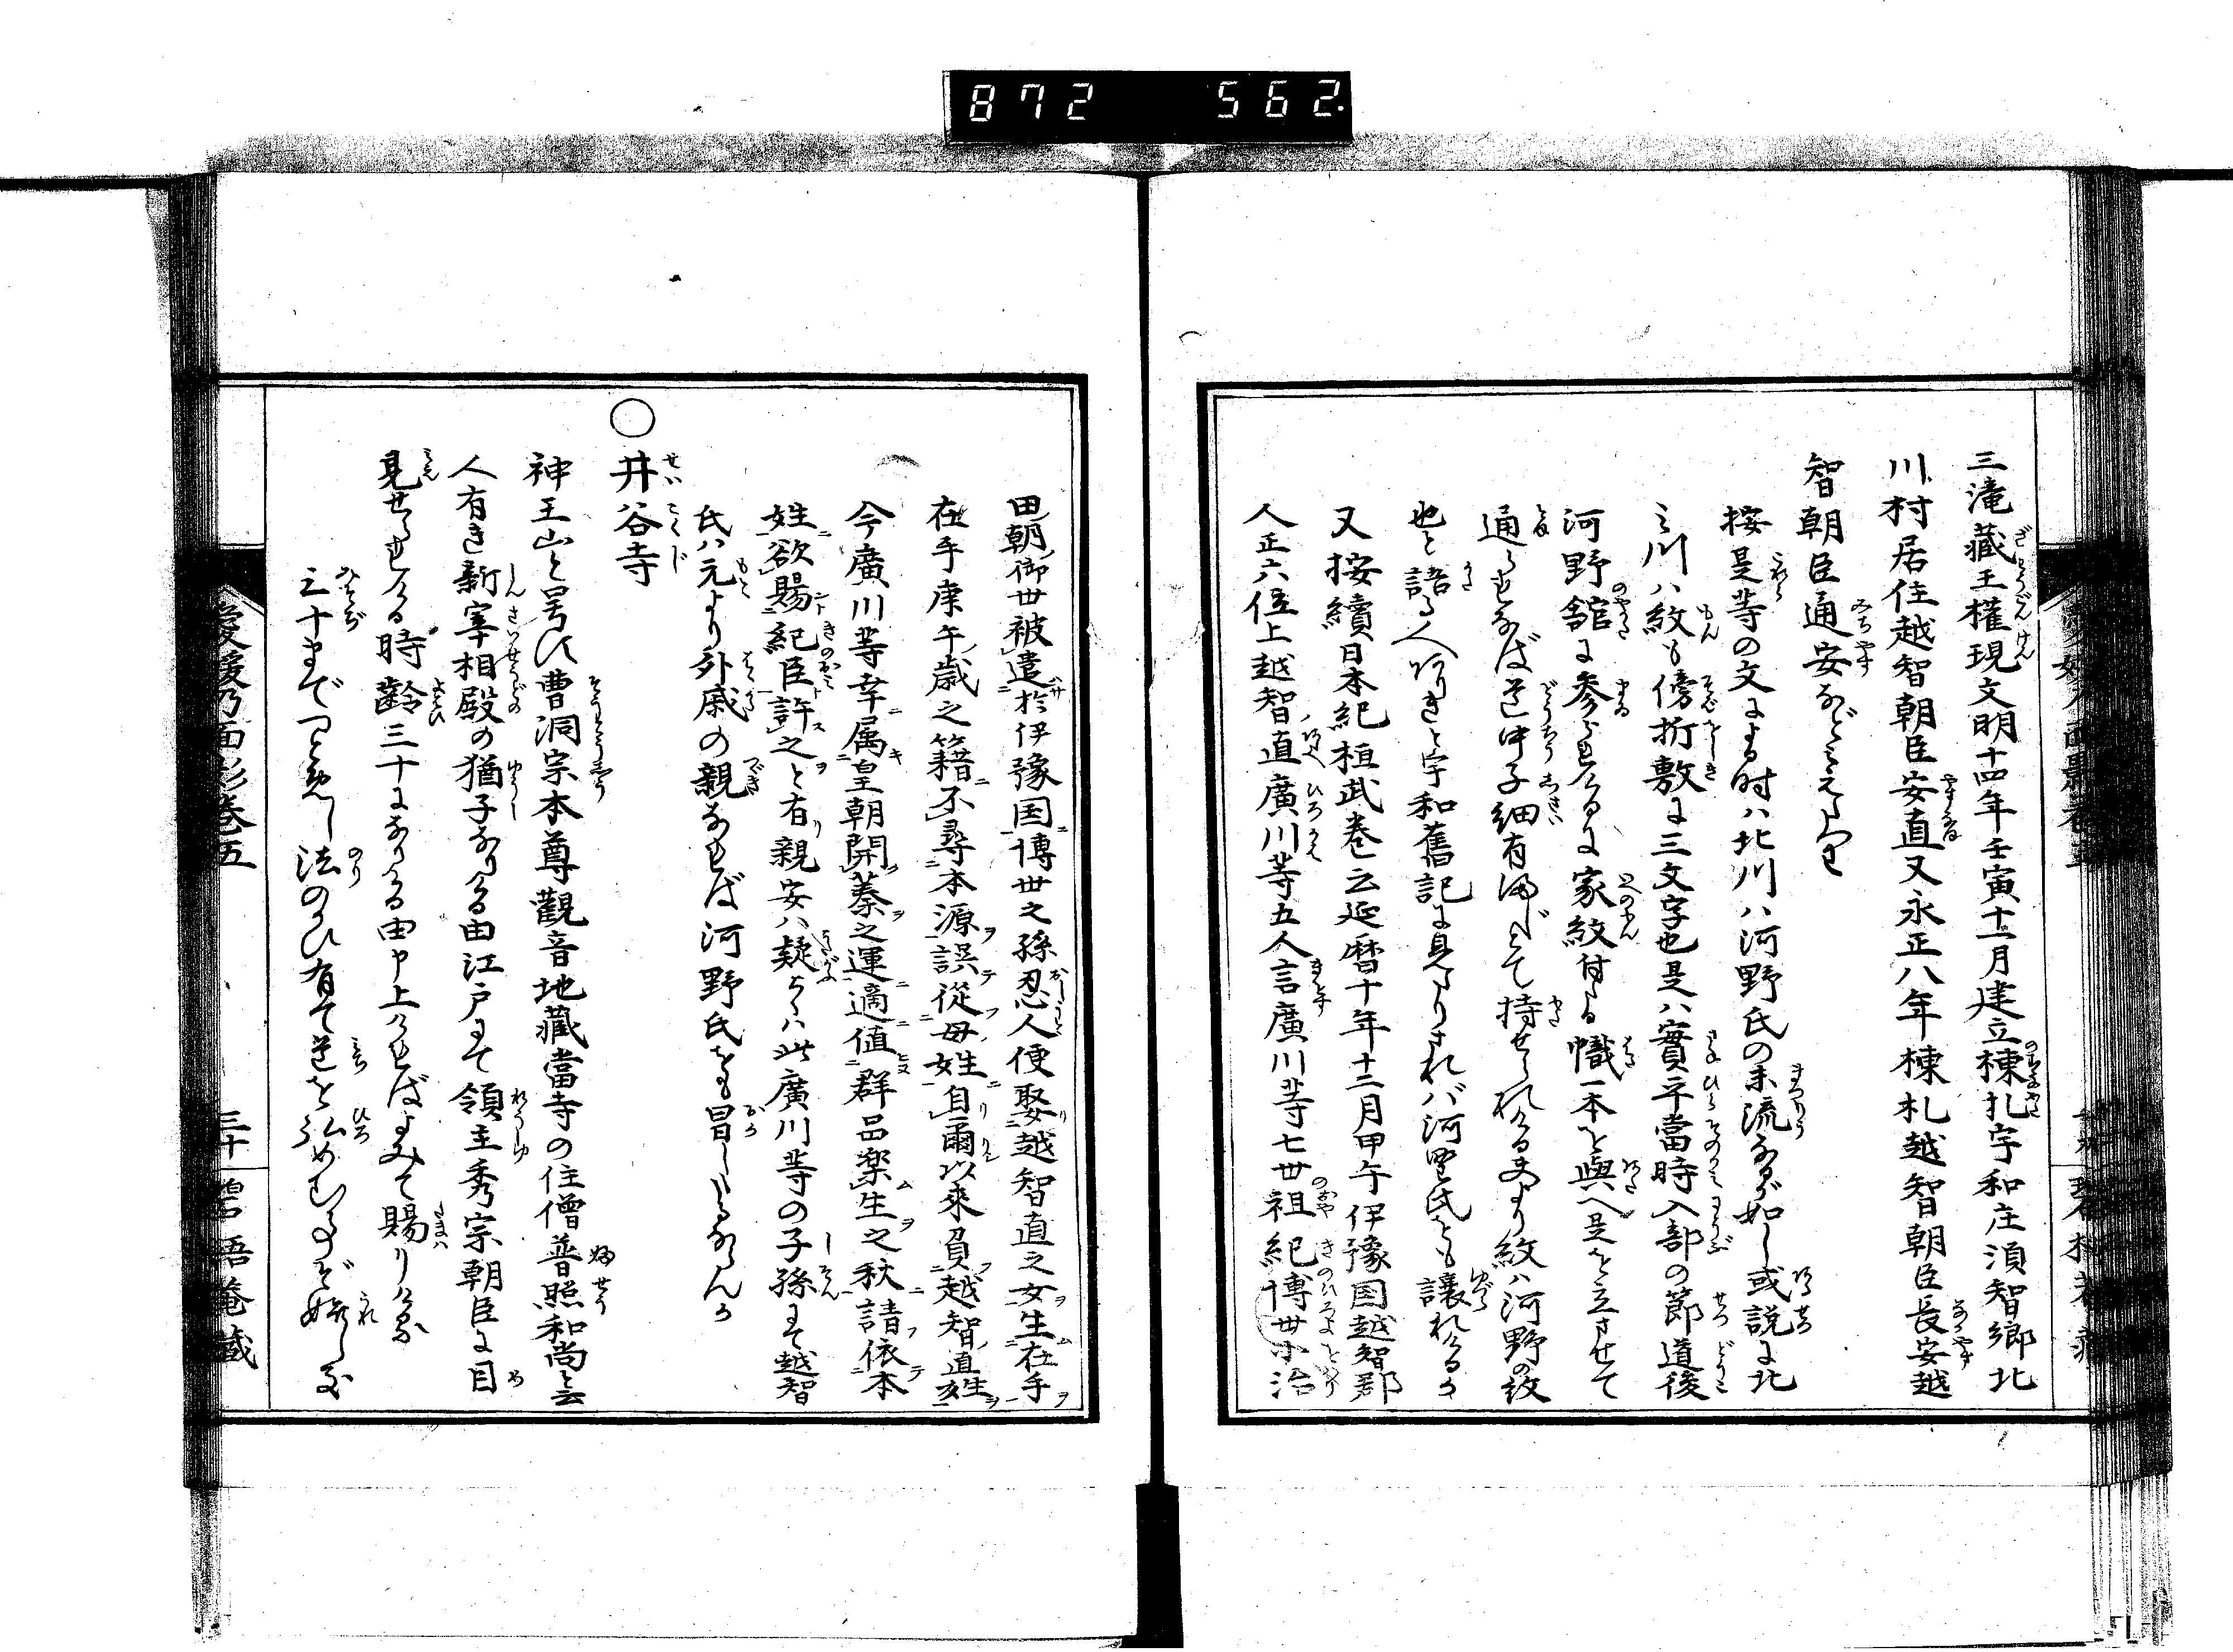 872 562.
三滝蔵王權現文明十四年壬寅十一月建立棟札宇和庄須智郷北
川村居住越智朝臣安直又永正八年棟札越智朝臣長安越
智朝臣通安などみえたり
按是等の文による時ハ北川ハ河野氏の末流なるが如し或説に北
之川ハ紋も傍折敷に三文字也是ハ實平當時入部の節道後
河野舘に参られけるに家紋付たる幟一本を與へ是を立させて
通られなば道中子細有まじとて持せられける夫より紋ハ河野の紋
也と語る人ありきと宇和舊記に見たりされバ河野氏をも譲れけるか
又按續日本紀桓武巻云延暦十年十二月甲午伊豫国越智郡
人正六位上越智直廣川等五人言廣川等七世祖紀博世小治
田朝御世被遣於伊豫国博世之孫忍人便娶越智直之女生在手
在手庚午歳之籍不尋本源誤從母姓自爾以來負越智直姓
今廣川等幸属皇朝開蓁之運適値群品楽生之秋請依本
姓欲賜紀臣許之と有親安ハ疑らくハ此廣川等の子孫にて越智
氏ハ元より外戚の親なれば河野氏をも冒しゝならんか
○井谷寺
神王山と号ひ曹洞宗本尊觀音地藏當寺の住僧普照和尚と云
人有き新宰相殿の猶子なりける由江戸にて領主秀宗朝臣に目
見せられける時齢三十になりける由申上ければよみて賜りける
三十まで
法のかひ有て道を弘めむる
愛媛乃面影巻五
三十
碧梧菴藏